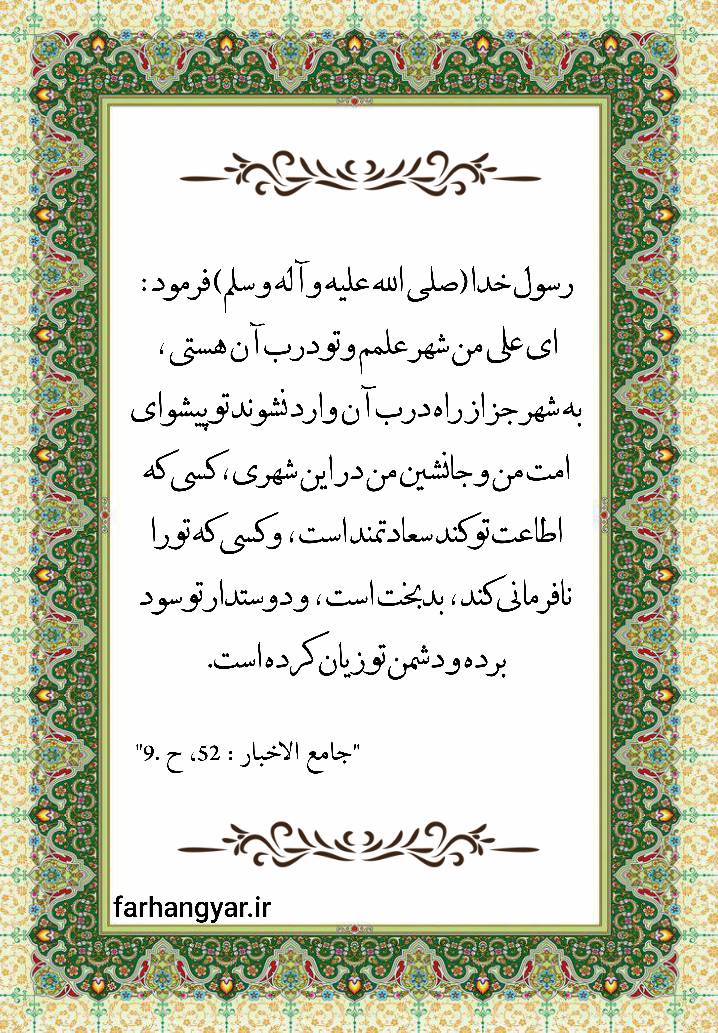 رسول خدا (صلی الله علیه و آله و سلم) فرمود :
ای علی من شهر علمم و تو درب آن هستی ،
به شهر جز از راه درب آن وارد نشوند تو پیشوای
امت من و جانشین من در این شهری ، کسی که
اطاعت تو کند سعادتمند است ، و کسی که تو را
نافرمانی کند ، بدبخت است ، و دوستدار تو سود
برده و دشمن تو زیان کرده است.
"جامع الاخبار : 52، ح .9"
farhangyar.ir